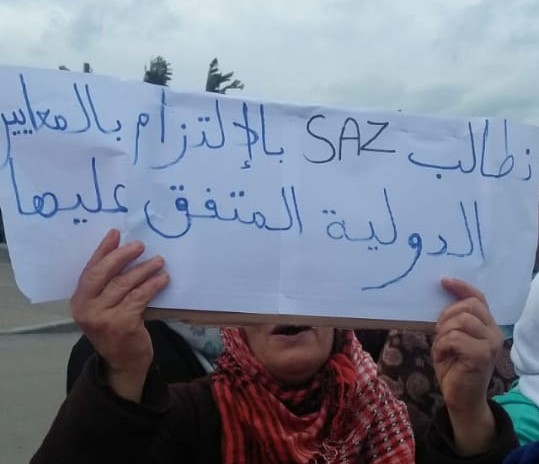 نطالب SAZ بالإلتزام بالمعايير
الدولية المتفق عليها